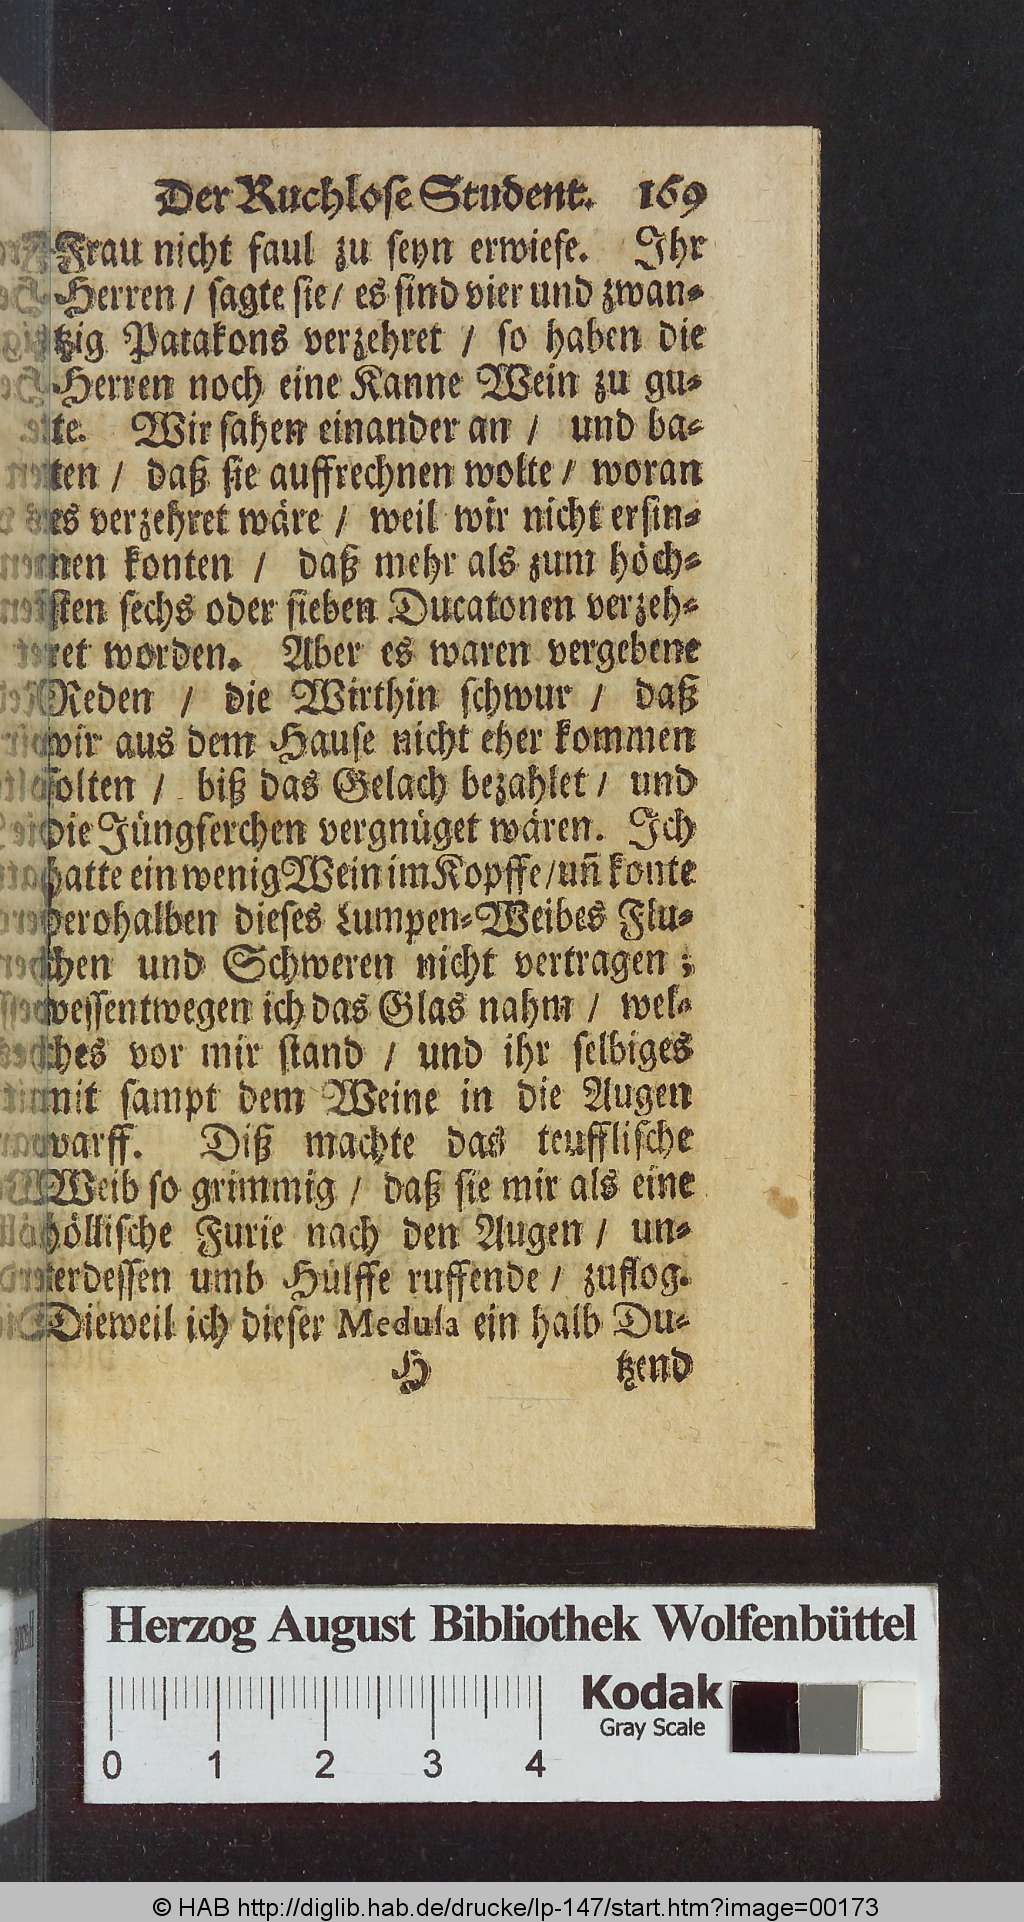 Der Ruchlose Student. 169
Frau nicht faul zu seyn erwiese. Ihr
Herren / sagte sie / es sind vier und zwan-
tzig Patakons verzehret / so haben die
Herren noch eine Kanne Wein zu gu-
te. Wir sahen einander an / und ba-
ten / daß sie auffrechnen wolte / woran
es verzehret wäre / weil wir nicht ersin-
nen konten / daß mehr als zum höch-
sten sechs oder sieben Ducatonen verzeh-
ret worden. Aber es waren vergebene
Reden / die Wirthin schwur / daß
wir aus dem Hause nicht eher kommen
solten / biß das Gelach bezahlet / und
die Jüngferchen vergnüget wären. Ich
hatte ein wenig Wein im Kopffe / uñ konte
derohalben dieses Lumpen-Weibes Flu-
chen und Schweren nicht vertragen ;
wessentwegen ich das Glas nahm / wel-
ches vor mir stand / und ihr selbiges
mit sampt dem Weine in die Augen
warff. Diß machte das teufflische
Weib so grimmig / daß sie mir als eine
höllische Furie nach den Augen / un-
terdessen umb Hülffe ruffende / zuflog.
Dieweil ich dieser Medula ein halb Du-
H tzend
Herzog August Bibliothek Wolfenbüttel
Kodak
Gray Scale
0 1 2 3 4
© HAB http://diglib.hab.de/drucke/lp-147/start.htm?image=00173